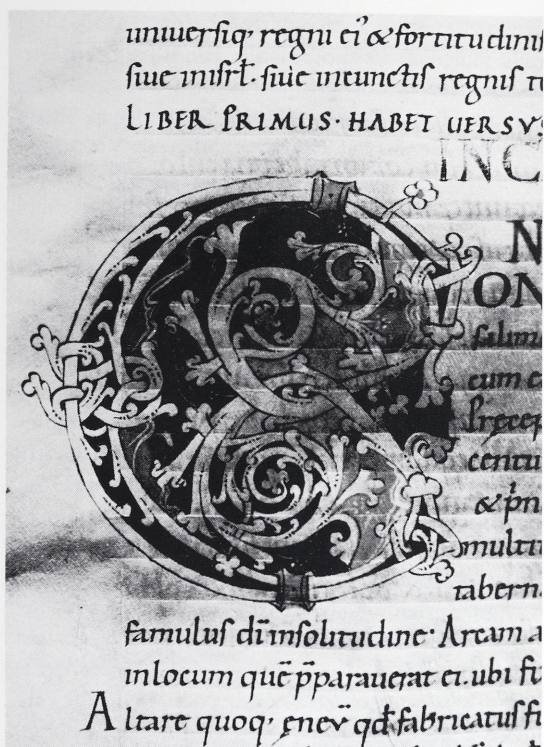 uniuersiq; regni ei͛ & fortitudinis
siue inisrł. siue incunctis regnis t
LIBER PRIMUS· HABET UERSVS
INC
N
ON
salim
cum e
Pręcep
centu
& p̄n
multit
tabern
famulus dī insolitudine· Arcam a
inlocum quē p̄parauerat ei. ubi fi
Altare quoq; ęneū qd̄ fabricatus fi